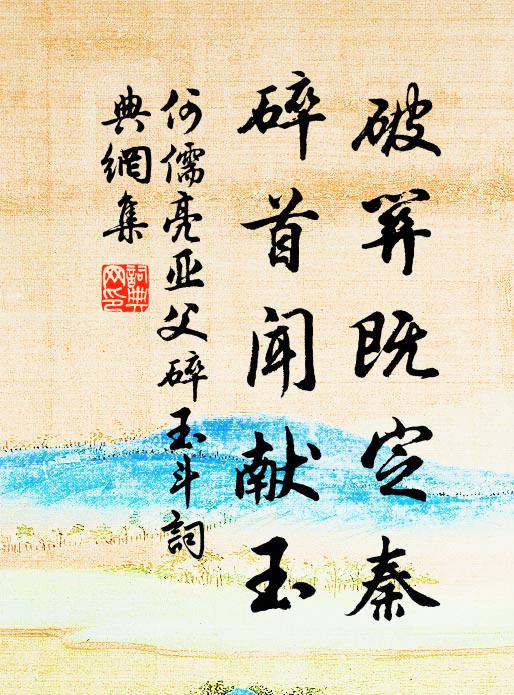 破关既定秦
碎首闻献玉
何儒亮亚父碎玉斗词
典網集
詞典网印